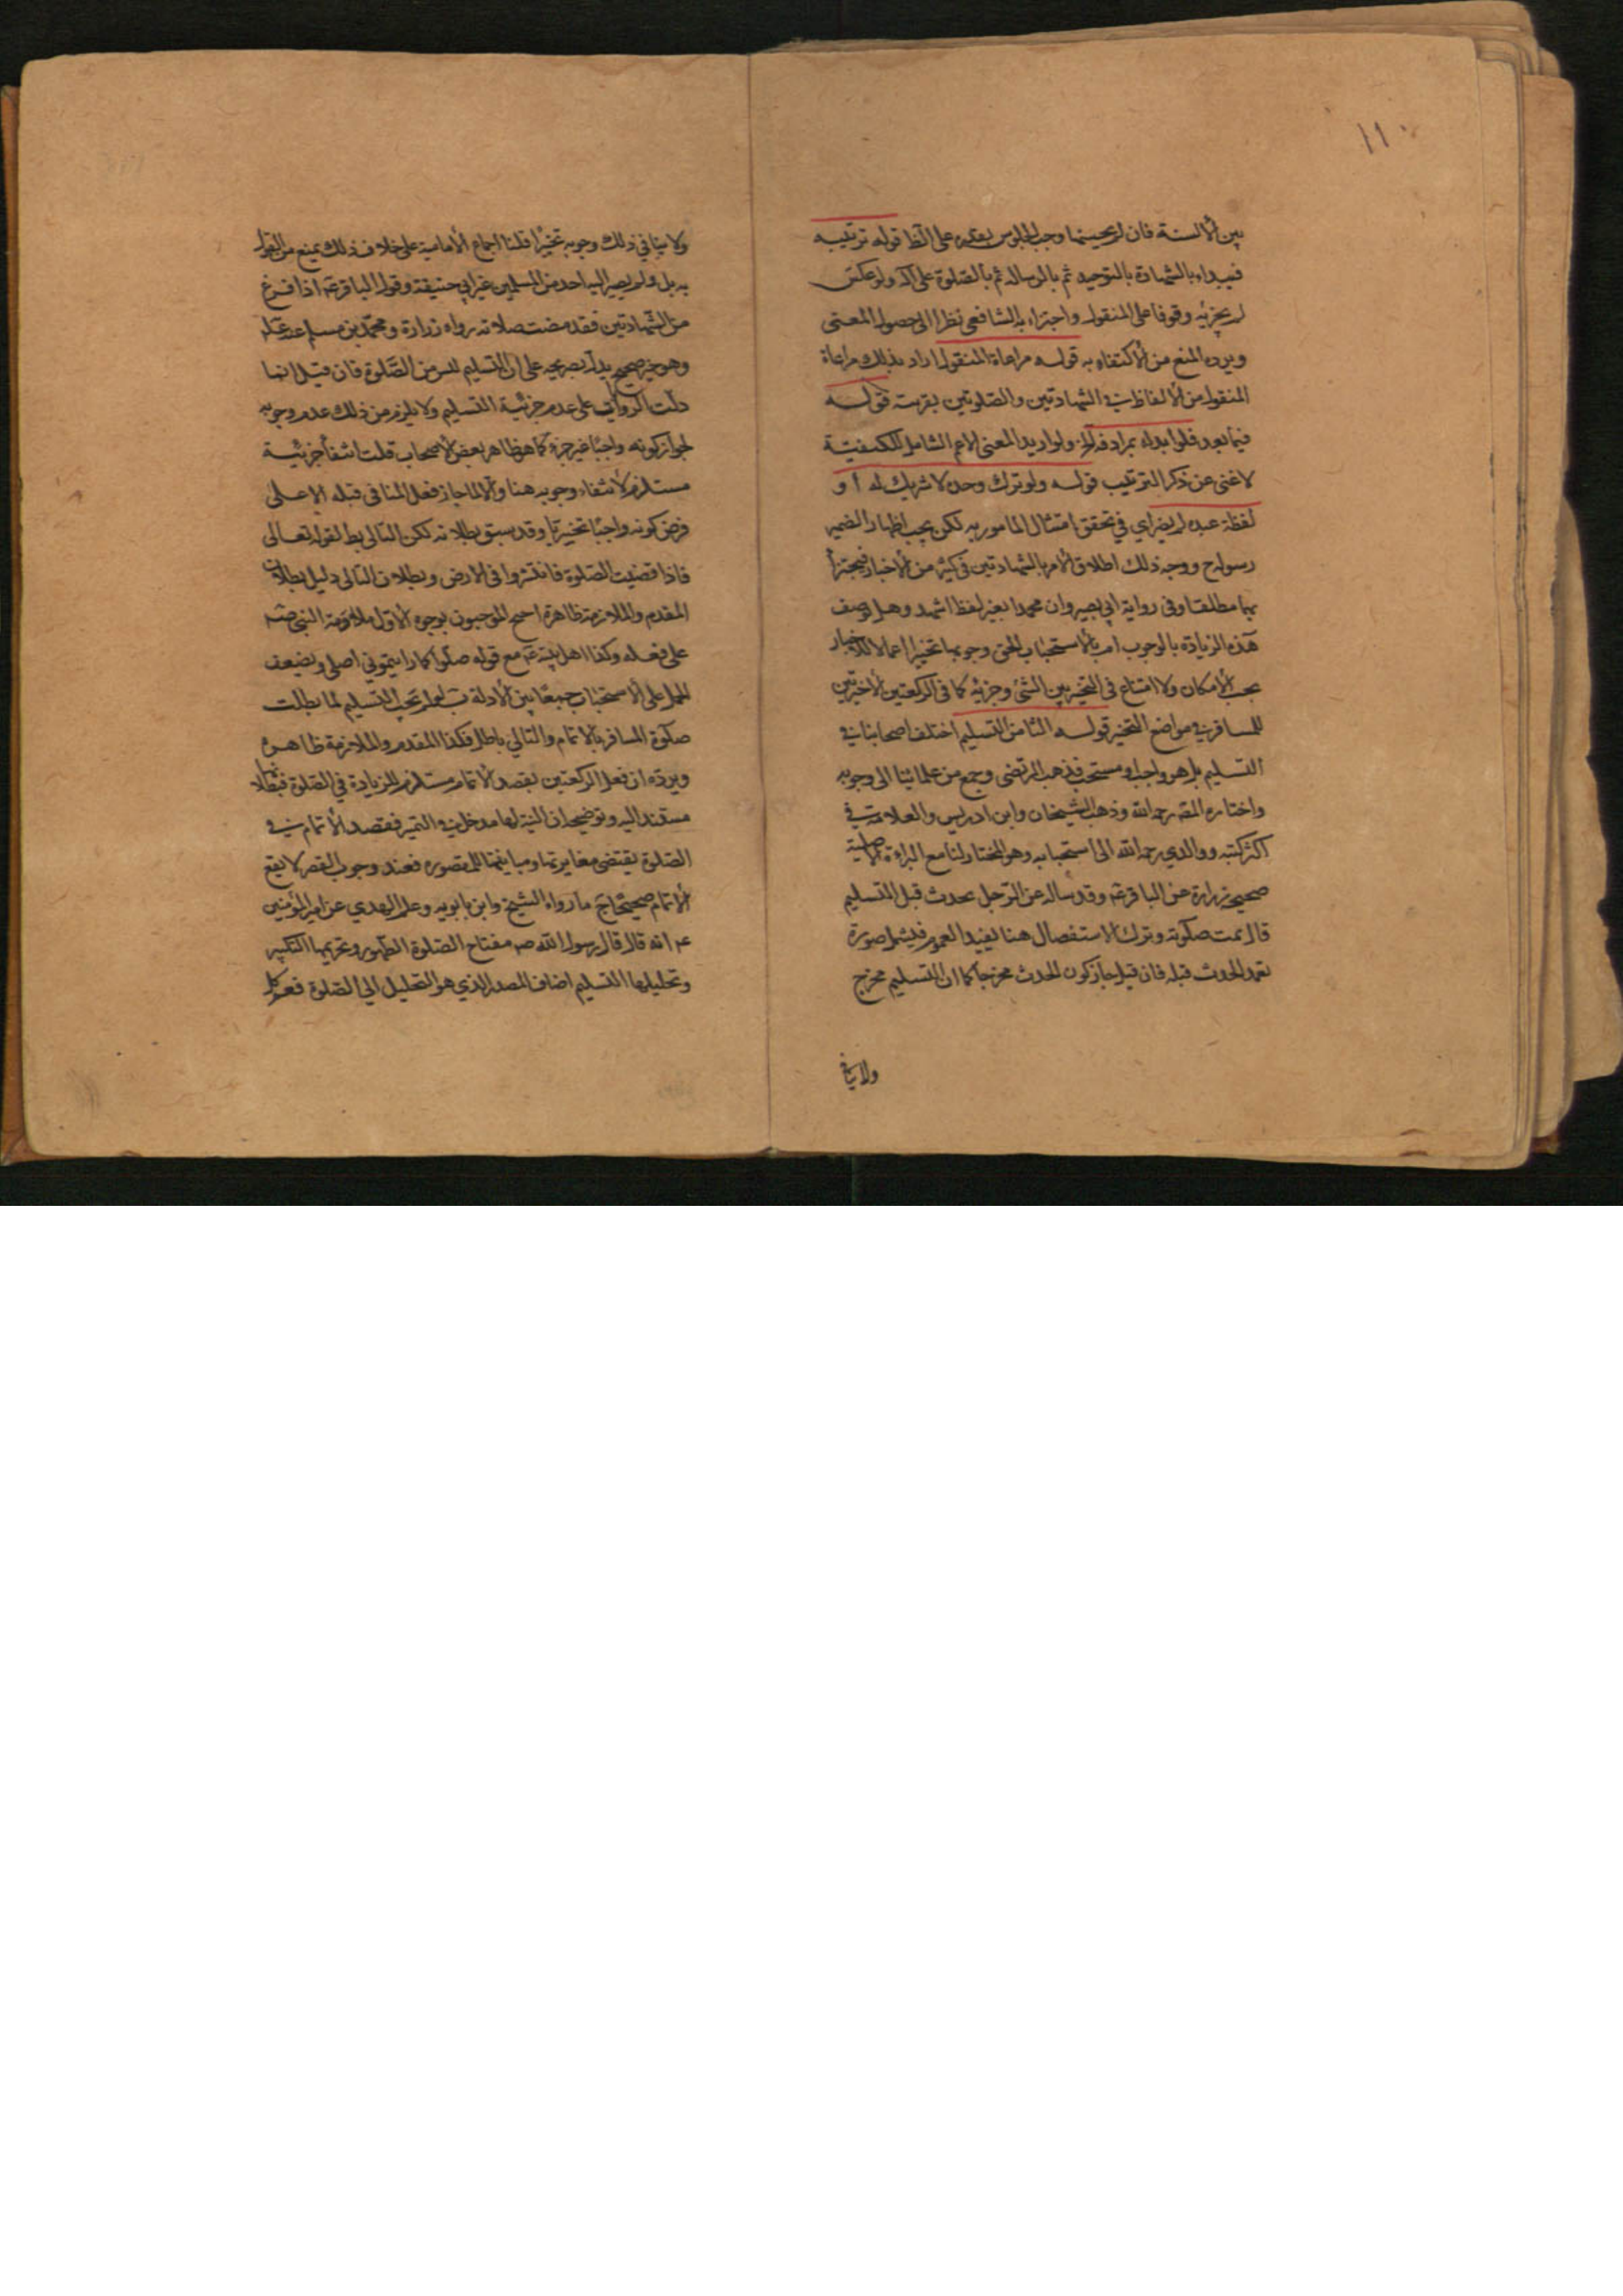 ١١٠
بين ألالسنة فان لم يحسنهما وجب الجلوس بقدره على الظا قوله ترتيبه
فيبداء بالشهادة بالتوحيد ثم بالرساله ثم بالصلوة على آله ولو عكس
لم يجزئه وقوفا على المنقول واجتزاء به الشافعي نظرا الى حصول المعنى
ويرده المنع من ألاكتفاء به قوله مراعاة المنقول اراد بذلك مراعاة
المنقول من ألالفاظ في الشهادتين والصلوتين بقرينة قوله
فيما بعد فلو ابدله بمرادفه الخ ولو اريد المعنى الاعم الشامل للكيفيّة
لاغنى عن ذكر الترتيب قوله ولو ترك وحده لا شريك له أو
لفظة عبده لم يضر اي في تحقق امتثال المامور به لكن يجب اظهار الضمير
رسوله ح ووجه ذلك اطلاق ألامر بالشهادتين في كثير من ألاخبار فيجتزأ
بهما مطلقا وفى رواية ابي بصير وان محمدا بغير لفظ اشهد وهل يوصف
هذه الزيادة بالوجوب ام بألاستحباب الحق وجوبها تخييرا اعمالا للاخبار
بحسب ألامكان ولا امتناع في التخيير بين الشئ وجزئه كما في الركعتين ألاخيرتين
للمسافر في مواضع التخيير قوله الثامن التسليم اختلف اصحابنا في
التسليم بل هو واجب او مستحب فذهب المرتضى وجمع من علمائنا الى وجوبه
واختاره المصّ رحمه الله وذهب الشيخان وابن ادريس والعلامة في
اكثر كتبه ووالدي رحمه الله الى استحبابه وهو المختار لنا مع البراءة الاصلية
صحيحة زرارة عن الباقر ع وقد سأله عن الرّجل يحدث قبل التسليم
قال تمت صلوته وترك الاستفصال هنا يفيد العموم فيشمل صورة
تعمد الحدث قبله فان قيل جاز كون الحدث مخرجا كما ان التسليم مخرج
ولا ينافي
ولا ينافي ذلك وجوبه تخييرا قلنا اجماع ألامامية على خلاف ذلك يمنع من القول
به بل ولم يصر اليه احد من المسلمين غير ابي حنيفة وقول الباقر ع اذا فرغ
من الشهادتين فقد مضت صلاته رواه زرارة ومحمّد بن مسلم عنه ع
وهو خبر صحيح يدل بصريحه على ان التسليم ليس من الصّلوة فان قيل انما
دلّت الروايات على عدم جزئية التسليم ولا يلزم من ذلك عدم وجوبه
لجواز كونه واجبًا غير جزء كما هو ظاهر بعض ألاصحاب قلت انتفأ جزئية
مستلزم لأنتفاء وجوبه هنا وألا لما جاز فعل المنافى قبله الا على
فرض كونه واجبًا تخييريًا وقد سبق بطلانه لكن التالى بط لقوله تعالى
فاذا قضيت الصّلوة فانتشروا فى الارض وبطلان التالى دليل بطلان
المقدم والملازمة ظاهرة احتج الموجبون بوجوه ألاول مداومة النبي ص
على فعله وكذا اهل بيته ع مع قوله صلّوا كما رايتموني اصلى ويضعف
الحمل على ألاستحباب جمعًا بين ألادلة ب لو لم يجب التسليم لما بطلت
صلوة المسافر بالاتمام والتالي باطل فكذا المقدم والملازمة ظاهرة
ويردّه ان فعل الركعتين بقصد ألاتمام مستلزم للزيادة في الصّلوة فبطلانها
مستند اليه وتوضيحه ان النية لها مدخل في التميز فقصد ألاتمام في
الصّلوة يقتضى مغايرتها ومباينتها للمقصوره فعند وجوب القصر لا يقع
ألاتمام صحيحًا ج ما رواه الشيخ وابن بابويه وعلم الهدي عن امير المؤمنين
ع انه قال قال رسول الله ص مفتاح الصّلوة الطّهور وتحريمها التكبير
وتحليلها التسليم اضاف المصدر الذي هو التحليل الي الصّلوة فعم كل